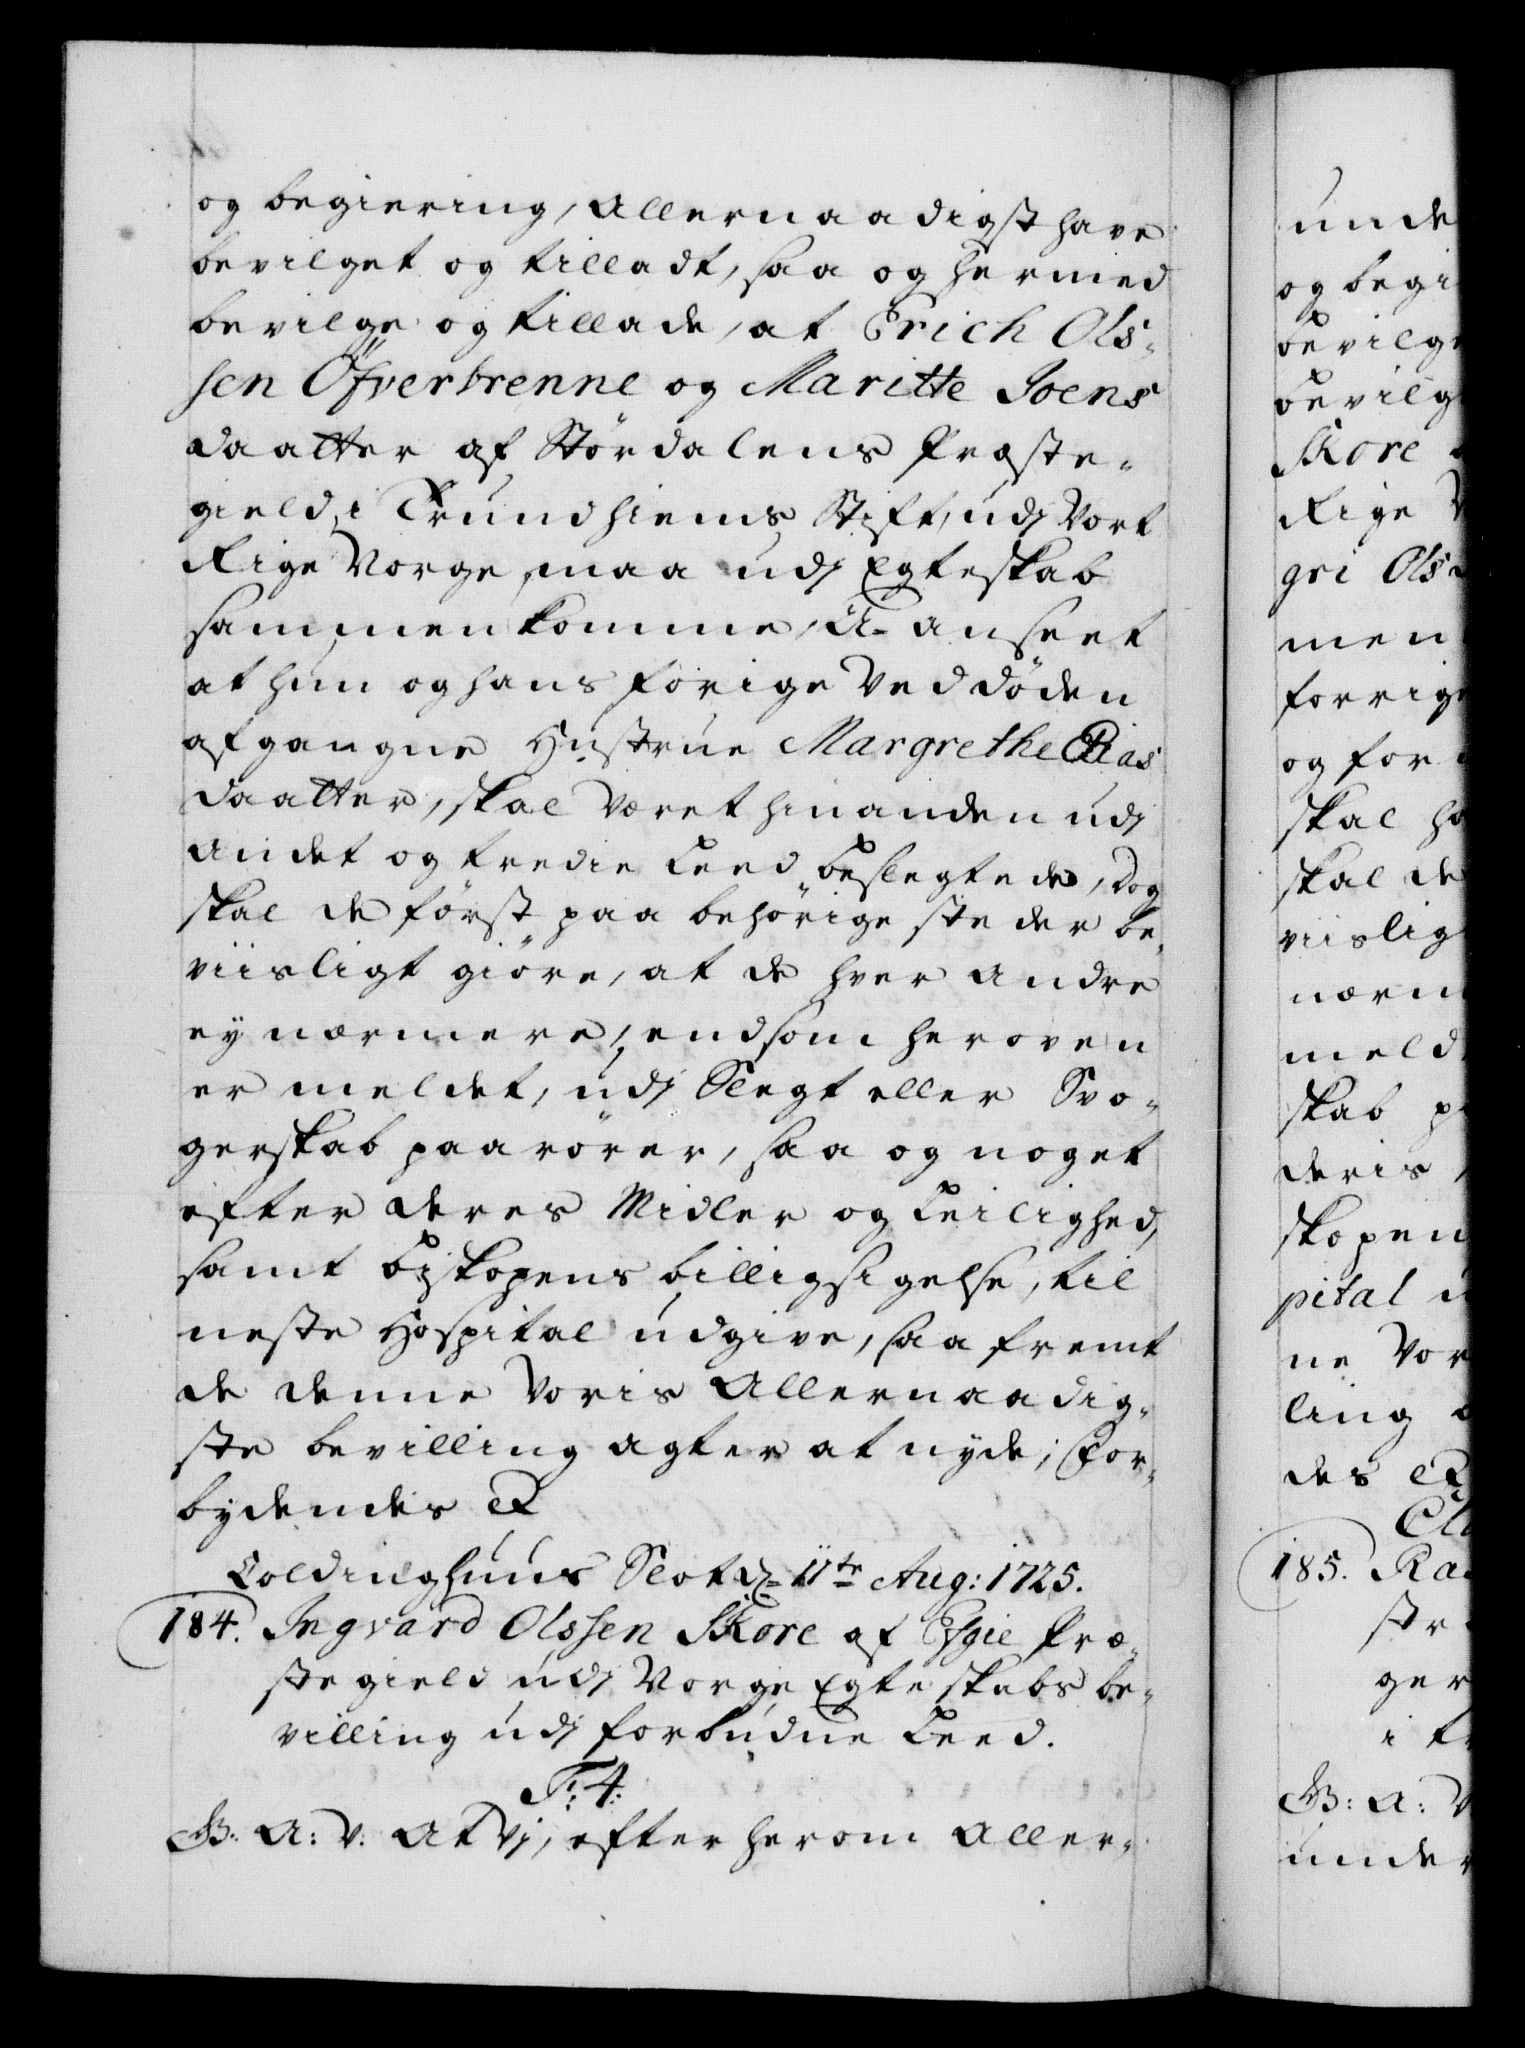 og begiering, Allernaadigst have
bevilget og tilladt, saa og hermed
bevilge og tillade, at Erich Ols-
sen Öfverbrenne og Maritte Joens
daatter af Stördalens Præste-
gield i Trundhiems Stift, udj Vort
Rige Norge, maa udj Egteskab
sammenkomme, U-anseet
at hun og hans forige ved döden
afgangne Hustrue Margrethe Elias
daatter, skal været hinanden udj
andet og tredie Leed beslegtede, dog
skal de först paa behörige steder be-
viisligt giöre, at de hver andre
ey nærmere, end som heroven
er meldet, udj Slegt eller Svo-
gerskab paarörer, saa og noget
efter deres Midler og Leilighed,
samt Biskopens billigsigelse, til
neste Hospital udgive, saa fremt
de denne Voris Allernaadig-
ste bevilling agter at nyde; For-
bydendis &
Coldinghuus Slot d. 11te Aug: 1725.
184. Ingvard Olssen Skore af Essie Præ-
stegield udj Norge Egteskabs be-
villing udj forbudne Leed.
F: 4:
G: A: V: At Vj, efter herom Aller-
unde
og begi
bevilge
bevilg
Skore
Rige
gri Ols
men
forrige
og for
skal ha
skal de
viislig
nærm
meld
skab p
deris
skopen
pital u
ne Vor
ling
des &
185. Ra
str
ger
i tr
G: A: V
under